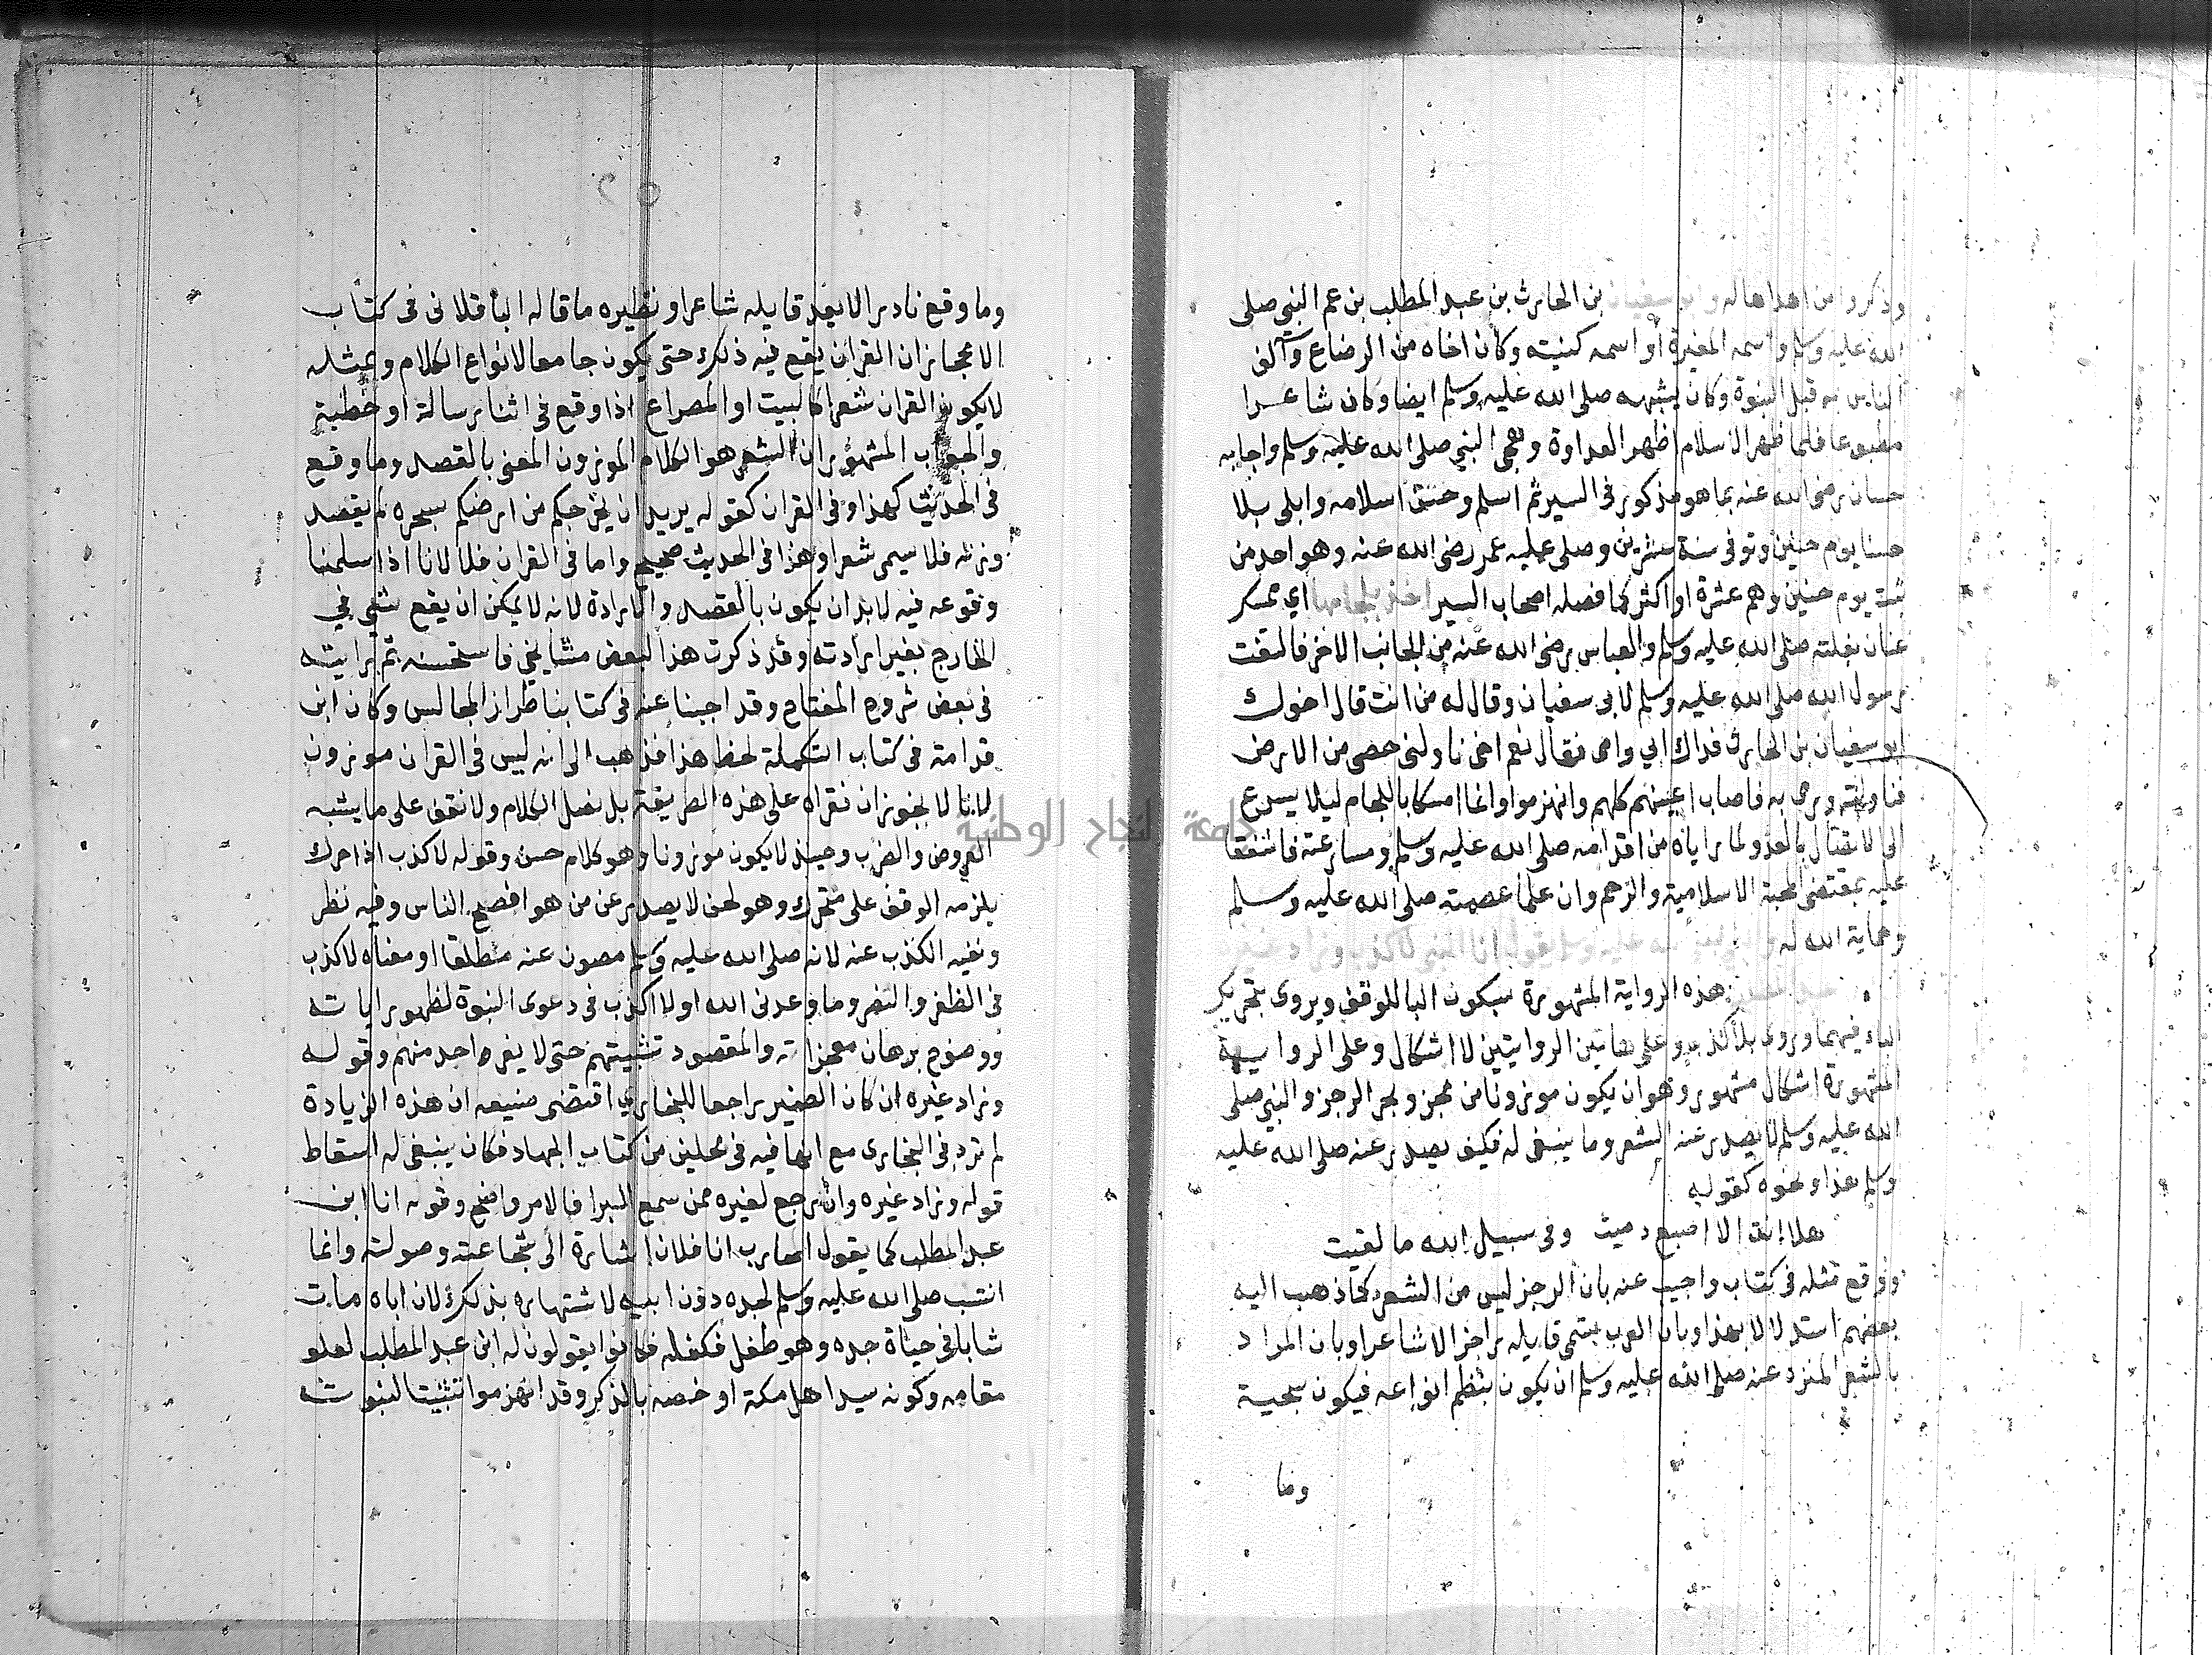 وذكروا من اهداها له وابو سفيان بن الحارث بن عبد المطلب بن عم النبي صلى
الله عليه وسلم واسمه المغيرة أو اسمه كنيته وكان اخاه من الرضاع وآلف
الناس به قبل النبوة وكان يشبهه صلى الله عليه وسلم ايضا وكان شاعرا
مطبوعا فلما ظهر الاسلام اظهر العداوة وهجى النبي صلى الله عليه وسلم واجابه
حسان رضى الله عنه بما هو مذكور فى السير ثم اسلم وحسن اسلامه وابلى بلا
حسنا يوم حنين وتوفى سنة عشرين وصلى عليه عمر رضى الله عنه وهو احد من
ثبت يوم حنين وهم عشرة او اكثر كما فصله اصحاب السير اخذ بلجامها اي ممسكر
عنان بغلته صلى الله عليه وسلم والعباس رضى الله عنه من الجانب الاخر فالتفت
رسول الله صلى الله عليه وسلم لابى سفيان وقال له من انت قال اخوك
ابو سفيان بن الحارث فداك ابي وامى فقال نعم اخى ناولنى حصى من الارض
فناولته ورمى به فاصاب اعينهم كلهم وانهزموا وانما امسكا باللجام ليلا يسرع
الى الاقتال بالعدو لما راياه من اقدامه صلى الله عليه وسلم ومسارعته فاشفقا
عليه بمقتضى المحبة الاسلامية والرحم وان علما عصمته صلى الله عليه وسلم
وحماية الله له والنبي صلى الله عليه وسلم يقول انا النبي لا كذب وزاد غيره
هذه الرواية المشهورة بسكون البا للوقف ويروى بتحريك
الباء فيهما وروى بلا كذب وعلى هاتين الروايتين لا اشكال وعلى الرواية
المشهورة اشكال مشهور وهو ان يكون موزونا من مجزو بحر الرجز والنبي صلى
الله عليه وسلم لا يصدر عنه الشعر وما ينبغى له فكيف يصدر عنه صلى الله عليه
وسلم هذا ونحوه كقوله
هلا انت الا اصبع دميت وفى سبيل الله ما لقيت
ووقع مثله فى كتاب واجيب عنه بان الرجز ليس من الشعر كما ذهب اليه
بعضهم استدلالا بهذا وبان العرب يسمى قايله راجزا لا شاعرا وبان المراد
بالشعر المنزه عنه صلى الله عليه وسلم ان يكون بنظم انواعه فيكون سجية
وما
وما وقع نادرا لا يعد قايله شاعرا ونظيره ما قاله الباقلانى فى كتاب
الاعجاز ان القران يقع فيه ذلك حتى يكون جامعا لانواع الكلام وبمثله
لا يكون القران شعرا كالبيت او المصراع اذا وقع فى اثنا رسالة او خطبة
والجواب المشهور ان الشعر هو الكلام الموزون المقفى بالقصد وما وقع
فى الحديث كهذا وفى القران كقوله يريد ان يخرجكم من ارضكم بسحره لم يقصد
وزنه فلا سيمى شعرا وهذا فى الحديث صحيح واما فى القران فلا لانا اذا سلمنا
وقوعه فيه لا بد ان يكون بالقصد والارادة لانه لا يمكن ان يقع شي في
الخارج بغير ارادته وقد ذكرت هذا لبعض مشايخي فاستحسنه ثم رايته
فى بعض شروح المفتاح وقد اجبنا عنه فى كتابنا طراز المجالس وكان ابن
قدامة فى كتاب التكملة لحظ هذا فذهب الى انه ليس فى القران موزون
لاننا لا نجوز ان نقراه على هذه الطريقة بل نصل الكلام ولا نقف على ما يشبه
العروض والضرب وحينيذ لا يكون موزونا وهو كلام حسن وقوله لا كذب اذا حرك
يلزمه الوقف على متحرك وهو لحن لا يصدر عن من هو افصح الناس وفيه نظر
ونفيه الكذب عنه لانه صلى الله عليه وسلم مصون عنه مطلقا او معناه لا كذب
فى الظفر والنصر وما وعدنى الله اولا اكذب فى دعوى النبوة لظهور اياته
ووضوح برهان معجزاته والمقصود تثبيتهم حتى لا يفر واحد منهم وقوله
وزاد غيره ان كان الضمير راجعا للبخاري اقتضى صنيعه ان هذه الزيادة
لم ترد فى البخارى مع انها فيه فى محلين من كتاب الجهاد فكان ينبغى له اسقاط
قوله وزاد غيره وان رجع لغيره ممن سمع البرا فالامر واضح وقوله انا ابن
عبد المطلب كما يقول المحارب انا فلان اشارة الى شجاعته وصولته وانما
انتسب صلى الله عليه وسلم لجده دون ابيه لاشتهاره بذلك لان اباه مات
شابا فى حياة جده وهو طفل فكفله فكانوا يقولون له ابن عبد المطلب لعلو
مقامه وكونه سيد اهل مكة او خصه بالذكر وقد انهزموا تثبيتا لنبوته